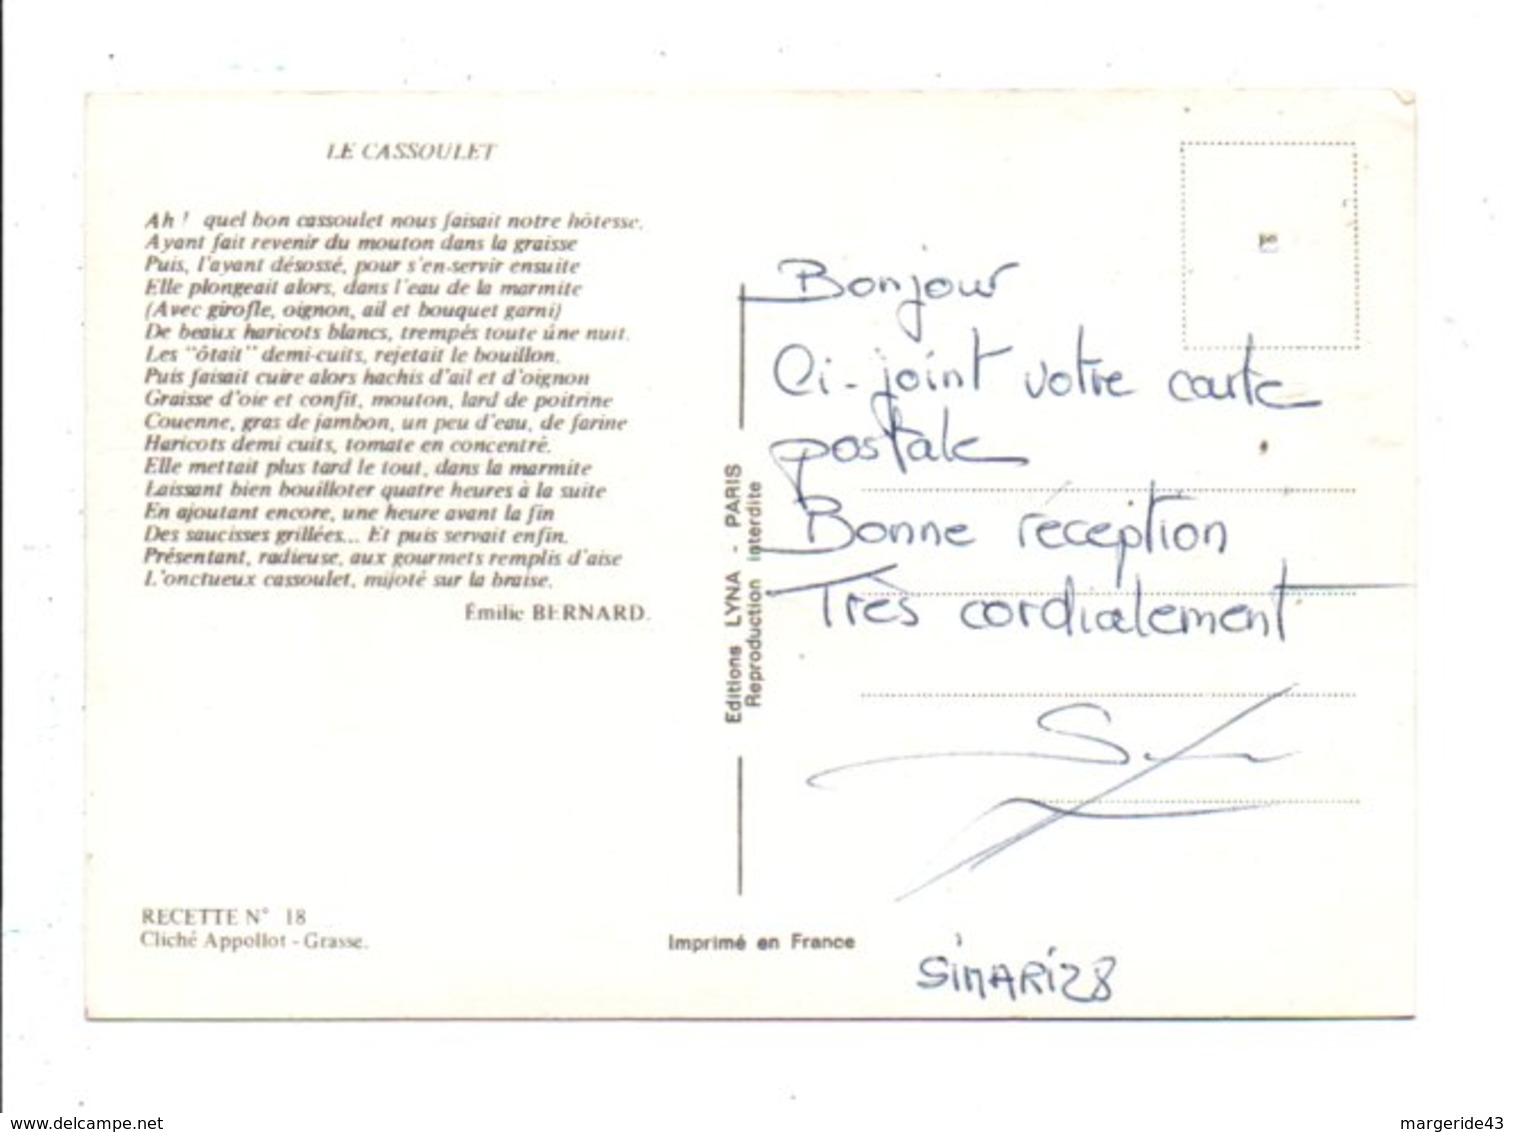 LE CASSOULET
Ah ! quel bon cassoulet nous faisait notre hôtesse.
Ayant fait revenir du mouton dans la graisse
Puis, l'ayant désossé, pour s'en-servir ensuite
Elle plongeait alors, dans l'eau de la marmite
(Avec girofle, oignon, ail et bouquet garni)
De beaux haricots blancs, trempés toute une nuit.
Les "ôtait" demi-cuits, rejetait le bouillon.
Puis faisait cuire alors hachis d'ail et d'oignon
Graisse d'oie et confit, mouton, lard de poitrine
Couenne, gras de jambon, un peu d'eau, de farine
Haricots demi cuits, tomate en concentré.
Elle mettait plus tard le tout, dans la marmite
Laissant bien bouilloter quatre heures à la suite
En ajoutant encore, une heure avant la fin
Des saucisses grillées... Et puis servait enfin.
Présentant, radieuse, aux gourmets remplis d'aise
L'onctueux cassoulet, mijoté sur la braise.
Émilie BERNARD.
RECETTE N° 18
Cliché Appollot - Grasse.
Editions LYNA - PARIS
Reproduction interdite
Imprimé en France
Bonjour
Ci-joint votre carte
postale
Bonne réception
Très cordialement
SIMARIZ8
www.delcampe.net
margeride43